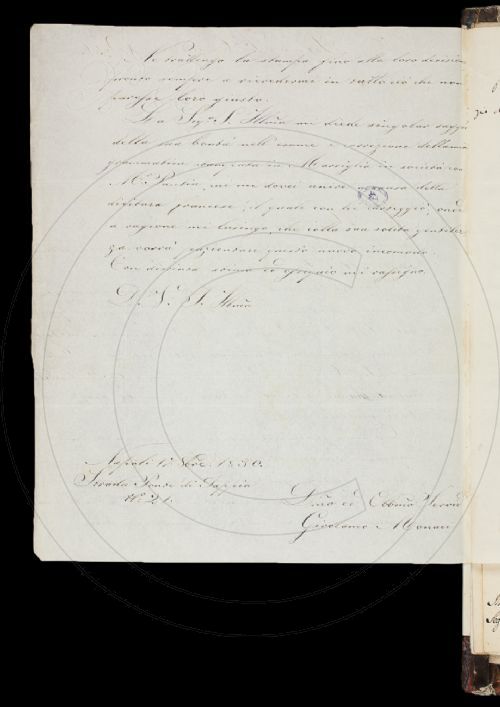 Ne trattengo la stampa fino alla loro decisione
pronto sempre a ricredermi in tutto ciò che non
paresse loro giusto.
La S. Illma mi diede singolar saggio
della sua bontà nell' esame e correzione della mia
grammatica stampata in Marsiglia in società con
Mr. che me dovei unire a causa della
francese, il quale con lei carteggiò, onde
a ragione mi lusingo, che colla sua solita gentilez
za vorrà questo nuovo incomodo.
Con distinta stima ed ossequio mi rassegno.
D. V. S. Illma
Napoli 1830.
Strada Ponte di Tappia
N° 21.
Dmo ed Obbmo Servo
Girolamo